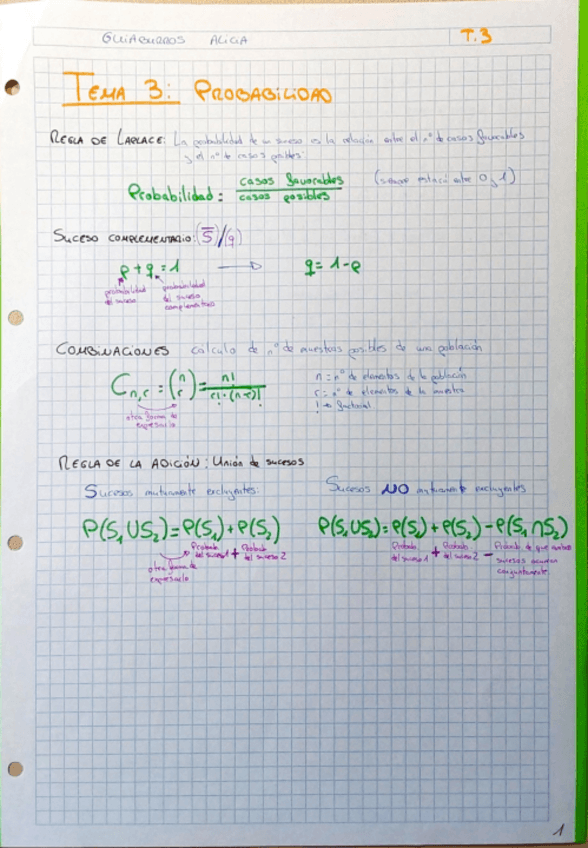 GUIABURROS ALICIA T.3
TEMA 3: PROBABILIDAD
REGLA DE LAPLACE: La probabilidad de un suceso es la relación entre el nº de casos favorables
y el nº de casos posibles.
Probabilidad: casos favorables / casos posibles (siempre estará entre 0 y 1)
SUCESO COMPLEMENTARIO: (S̅)/(q)
p + q = 1 → q = 1 - p
probabilidad del suceso
probabilidad del suceso complementario
COMBINACIONES cálculo de nº de muestras posibles de una población
C n,r = (n r) = n! / r! · (n-r)!
otra forma de expresarlo
n = nº de elementos de la población
r = nº de elementos de la muestra
! → factorial
REGLA DE LA ADICIÓN: Unión de sucesos
Sucesos mutuamente excluyentes:
Sucesos NO mutuamente excluyentes
P(S₁ U S₂) = P(S₁) + P(S₂)
P(S₁ U S₂) = P(S₁) + P(S₂) - P(S₁ ∩ S₂)
otra forma de expresarlo
Probab. del suceso 1 + Probab. del suceso 2
Probab. del suceso 1 + Probab. del suceso 2 - Probab. de que ambos sucesos ocurran conjuntamente
1